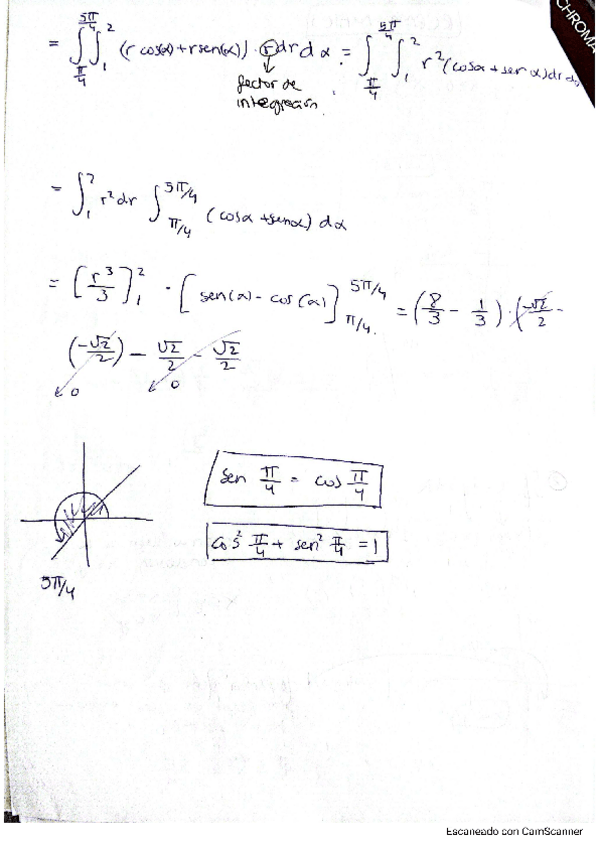 = ∫_{π/4}^{5π/4} ∫_1^2 (r cos(α)+rsen(α)) · r dr dα = ∫_{π/4}^{5π/4} ∫_1^2 r²(cosα+sen α)dr dα
factor de
integración.
= ∫_1^2 r² dr ∫_{π/4}^{5π/4} (cosα+senα) dα
= [r³/3]_1^2 · [sen(α) - cos(α)]_{π/4}^{5π/4} = (8/3 - 1/3) · (-√2/2 -
(-√2/2) - √2/2 - √2/2
0 0
sen π/4 = cos π/4
cos² π/4 + sen² π/4 = 1
5π/4
CHROMA
Escaneado con CamScanner